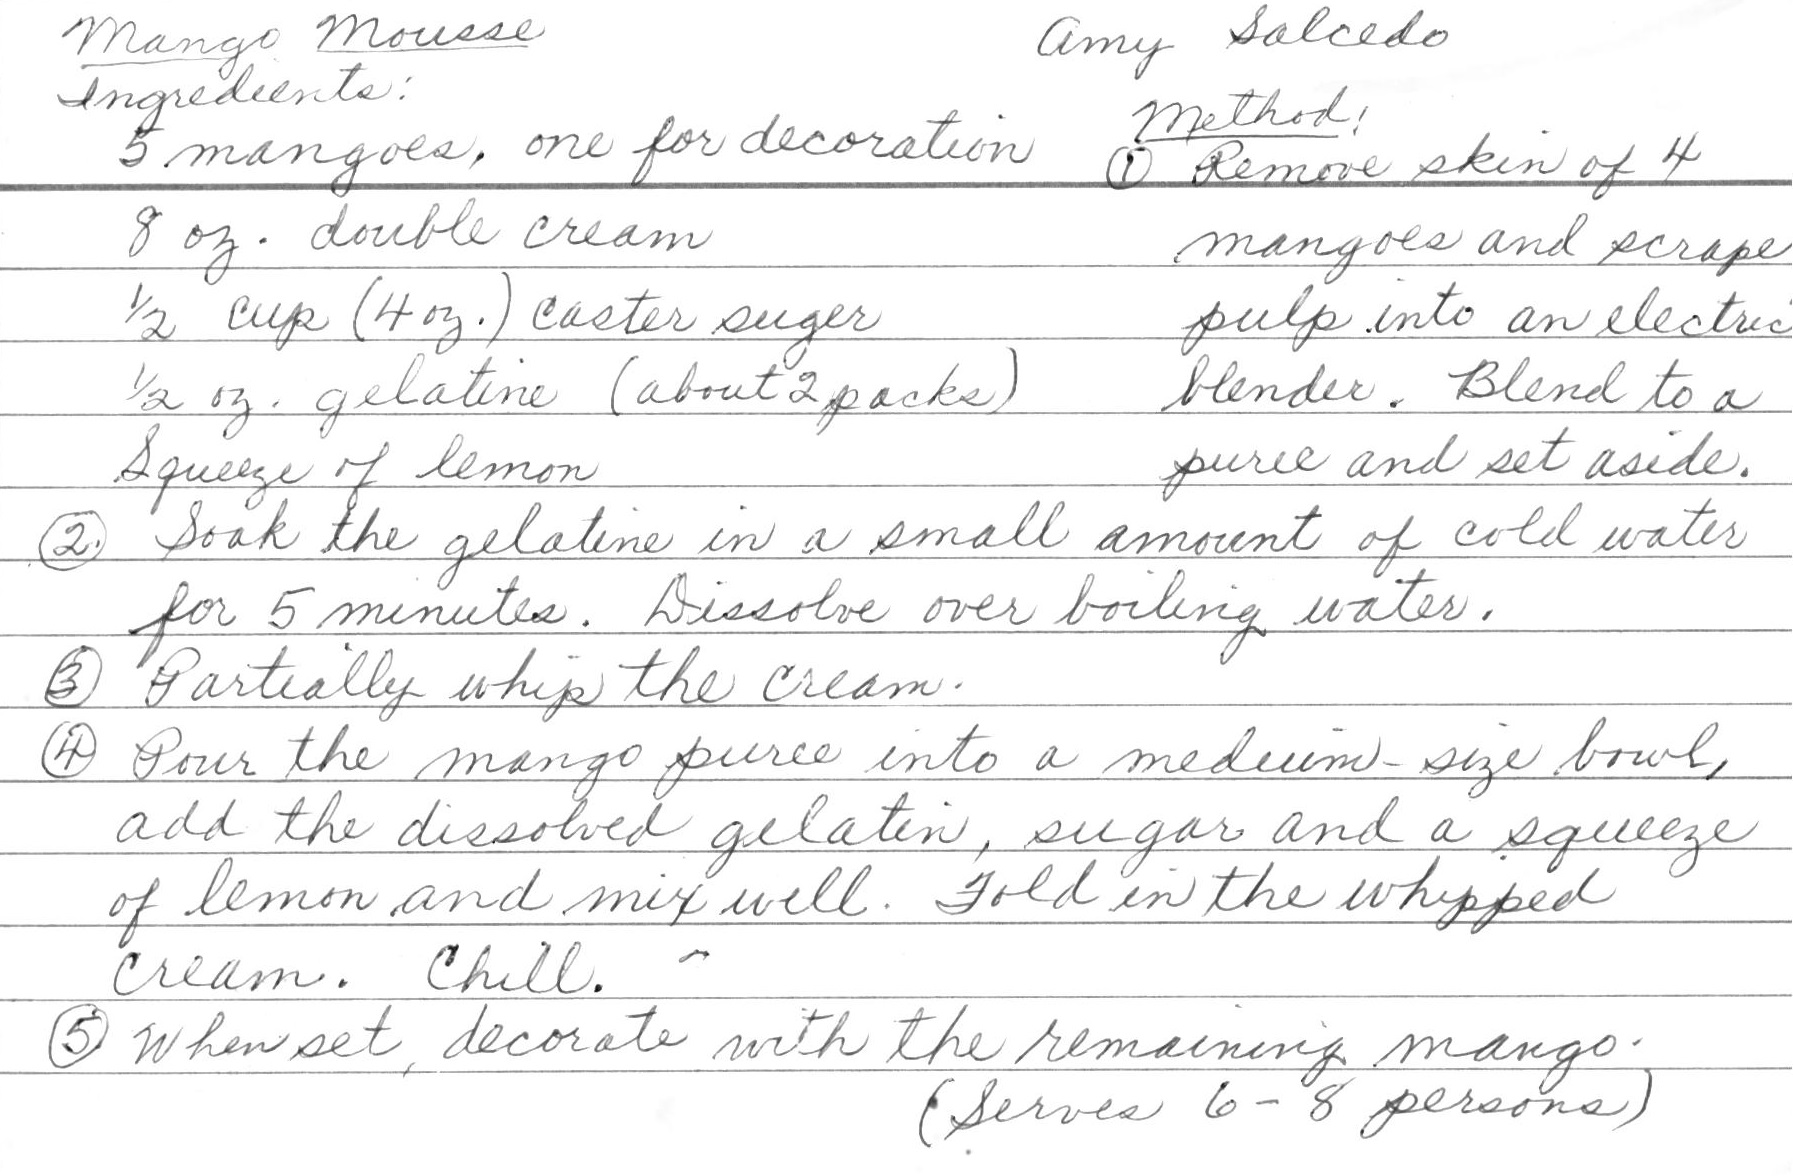 Mango Mousse
Amy Salcedo
Ingredients:
5 mangoes, one for decoration
8 oz. double cream
1/2 cup (4 oz.) caster suger
1/2 oz. gelatine (about 2 packs)
Squeeze of lemon
Method:
① Remove skin of 4
mangoes and scrape
pulp into an electric
blender. Blend to a
puree and set aside.
②. Soak the gelatine in a small amount of cold water
for 5 minutes. Dissolve over boiling water.
③ Partially whip the cream.
④ Pour the mango puree into a medium-size bowl,
add the dissolved gelatin, sugar and a squeeze
of lemon and mix well. Fold in the whipped
cream. Chill.
⑤ When set, decorate with the remaining mango.
(Serves 6-8 persons)